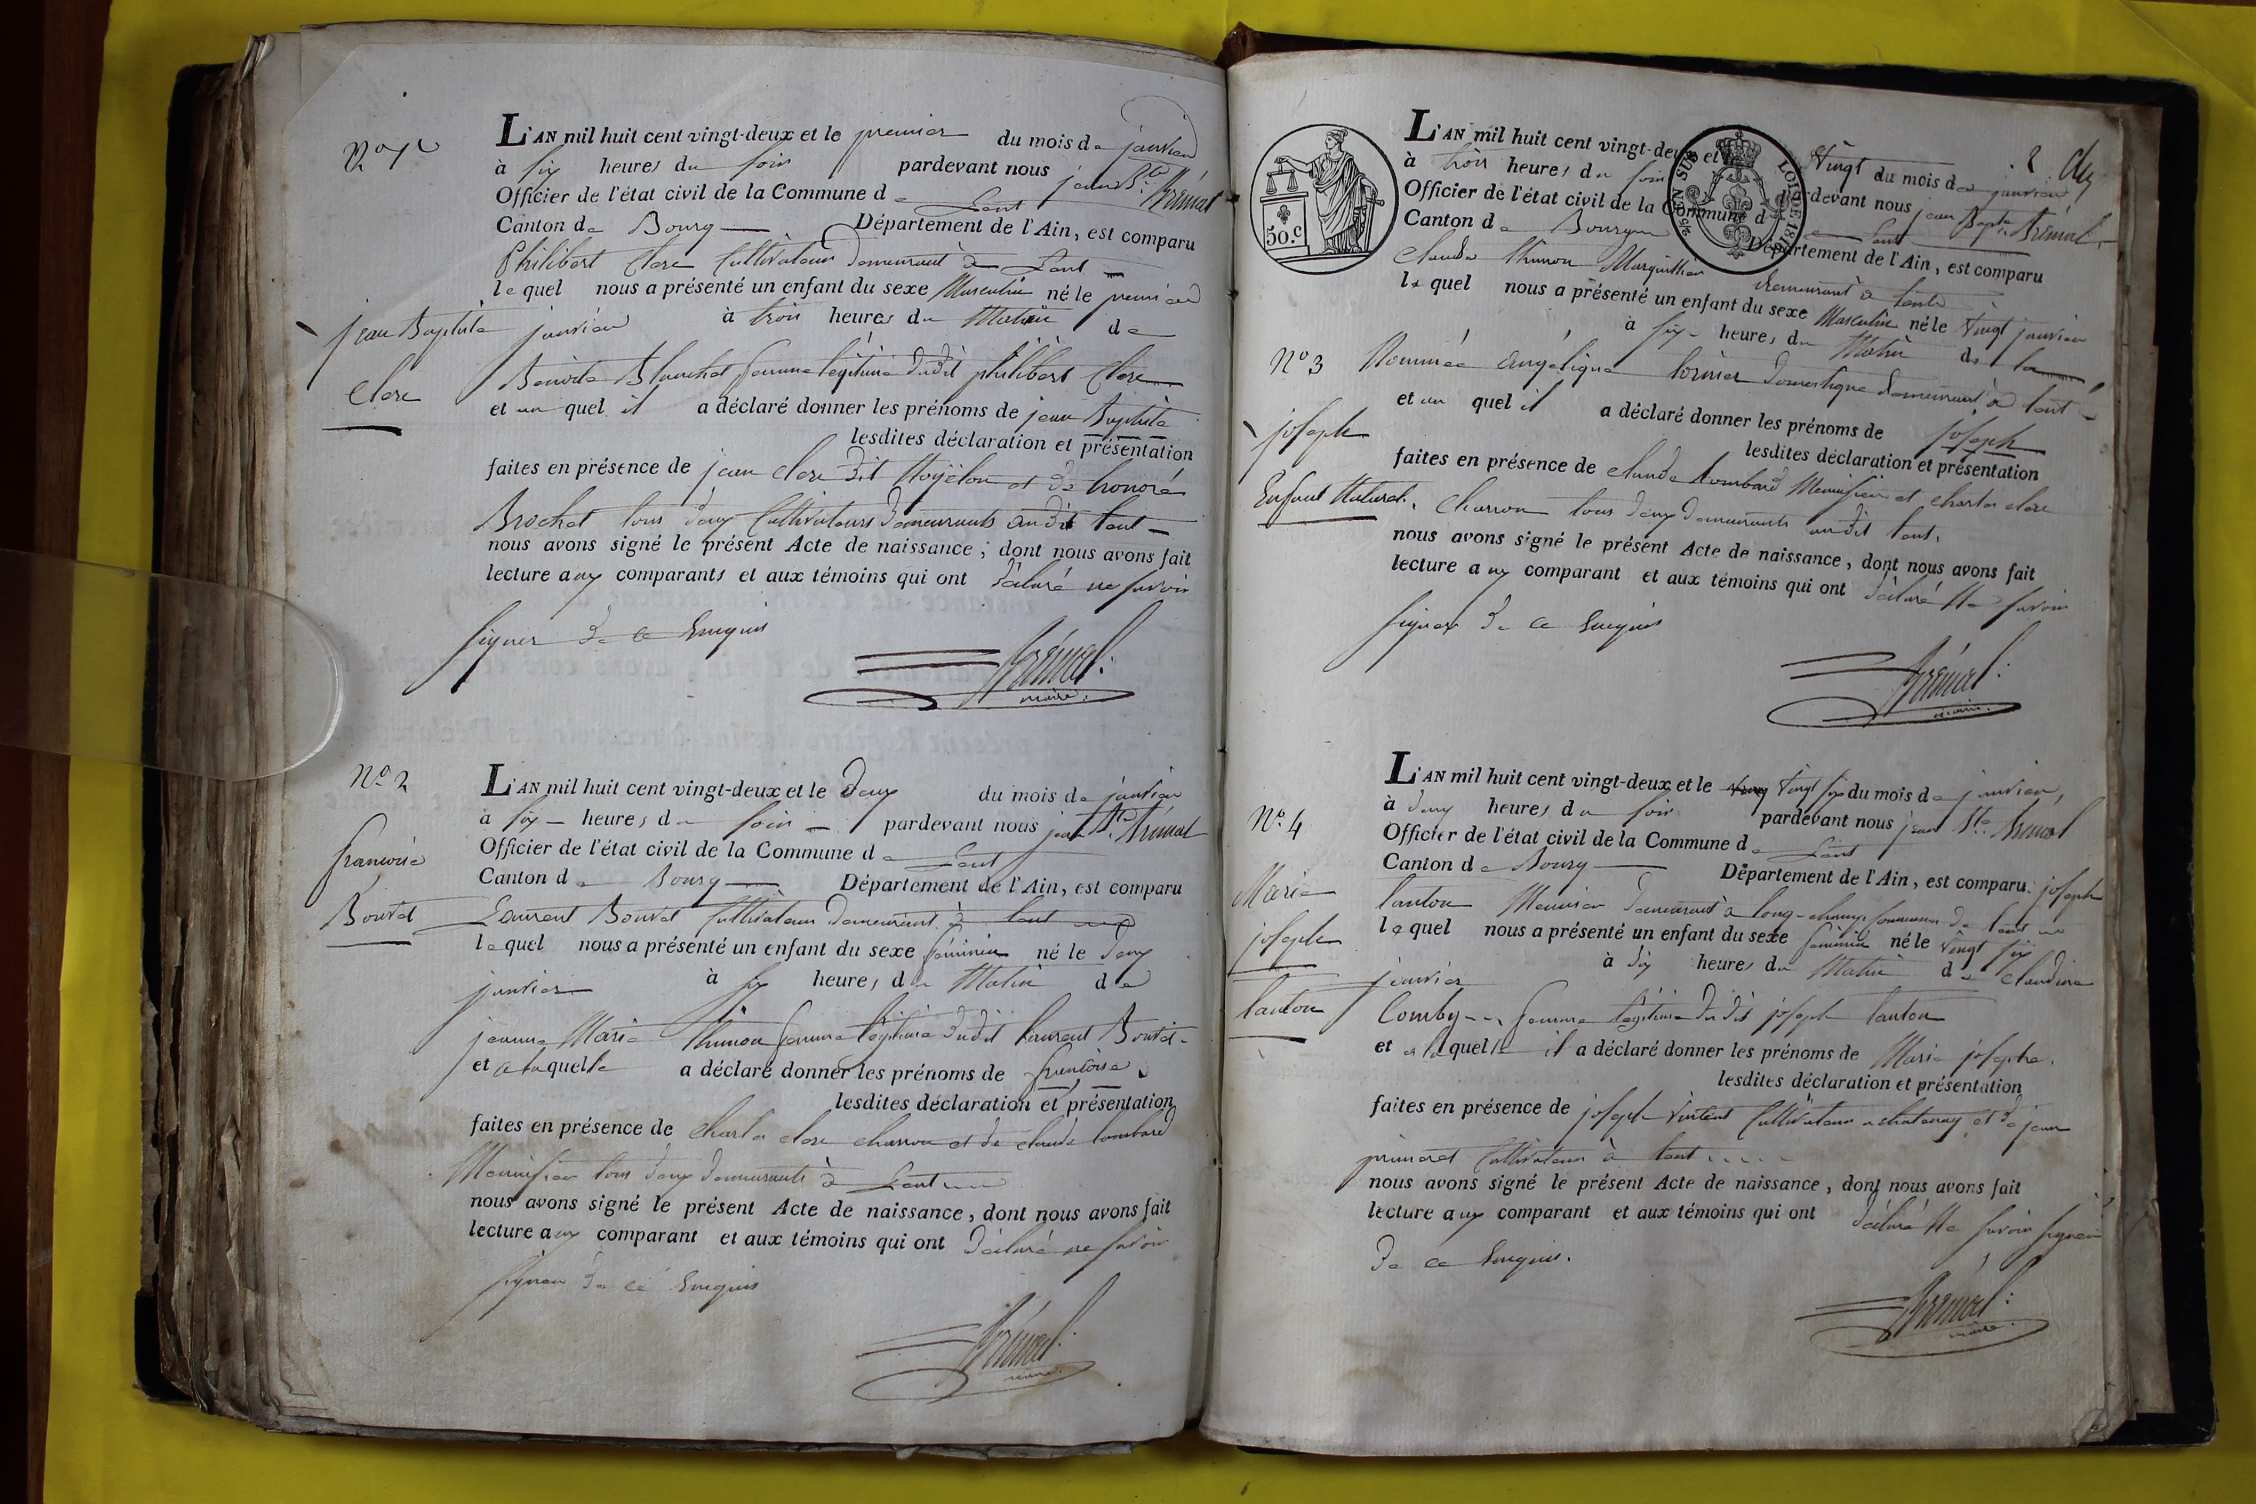 No 1er
L'AN mil huit cent vingt-deux et le premier du mois de janvier
à six heures du soir pardevant nous jean Bte Frémal
Officier de l'état civil de la Commune de Lent
Canton de Bourg Département de l'Ain, est comparu
Philibert Clere Cultivateur demeurant à Lent
lequel nous a présenté un enfant du sexe Masculin né le premier
janvier à trois heures du Matin de
Benoite Blanchet femme légitime dudit philibert Clere
et au quel il a déclaré donner les prénoms de jean Baptiste
lesdites déclaration et présentation
faites en présence de jean clere dit et de honoré
Brochet tous deux Cultivateurs demeurants audit Lent
nous avons signé le présent Acte de naissance ; dont nous avons fait
lecture aux comparants et aux témoins qui ont déclaré ne savoir
signer de ce Enequis
maire
jean Baptiste
Clere
No 2
L'AN mil huit cent vingt-deux et le Deux du mois de janvier
à six heures du soir pardevant nous jean Bte Frémal
Officier de l'état civil de la Commune de Lent
Canton de Bourg Département de l'Ain, est comparu
Laurent Bouvet Cultivateur demeurant à Lent
lequel nous a présenté un enfant du sexe féminin né le deux
janvier à six heures du Matin de
jeanne Marie Thenon femme légitime dudit Laurent Bouvet
et a laquelle a déclaré donner les prénoms de françoise
lesdites déclaration et présentation
faites en présence de Charles clere charron et de claude Lombard
Menuisier tous deux demeurants à Lent
nous avons signé le présent Acte de naissance, dont nous avons fait
lecture aux comparant et aux témoins qui ont déclaré ne savoir
signer de ce Enequis
maire
francoise
Bouvet
50.c
EN SUS
LOI DE 1816
2
L'AN mil huit cent vingt-deux et le Vingt du mois de janvier
à trois heures du soir pardevant nous jean Bapte Frémal
Officier de l'état civil de la Commune de Lent
Canton de Bourg Département de l'Ain, est comparu
Claude Thenon Marguillier demeurant à Lent
lequel nous a présenté un enfant du sexe Masculin né le Vingt janvier
à six heures du Matin de la
Nommée Angélique domestique demeurant à Lent
et au quel il a déclaré donner les prénoms de joseph
lesdites déclaration et présentation
faites en présence de claude Lombard Menuisier et charles clere
Charron tous deux demeurants audit Lent
nous avons signé le présent Acte de naissance, dont nous avons fait
lecture aux comparant et aux témoins qui ont déclaré Ne savoir
signer de ce Enequis
maire
No 3
joseph
Enfant Naturel
No 4
L'AN mil huit cent vingt-deux et le Vingt six du mois de janvier
à deux heures du soir pardevant nous jean Bte Frémal
Officier de l'état civil de la Commune de Lent
Canton de Bourg Département de l'Ain, est comparu joseph
Tanton Meunier demeurant à Long-champ Commune de Lent
lequel nous a présenté un enfant du sexe féminin né le Vingt six
janvier à dix heures du Matin de claudine
Comby femme légitime dudit joseph Tanton
et a la quelle il a déclaré donner les prénoms de Marie josephe
lesdites déclaration et présentation
faites en présence de joseph Vintent Cultivateur a chatenay et de jean
primeret Cultivateur à Lent
nous avons signé le présent Acte de naissance, dont nous avons fait
lecture aux comparant et aux témoins qui ont déclaré Ne savoir signer
de ce Enequis.
maire
Marie
josephe
Tanton